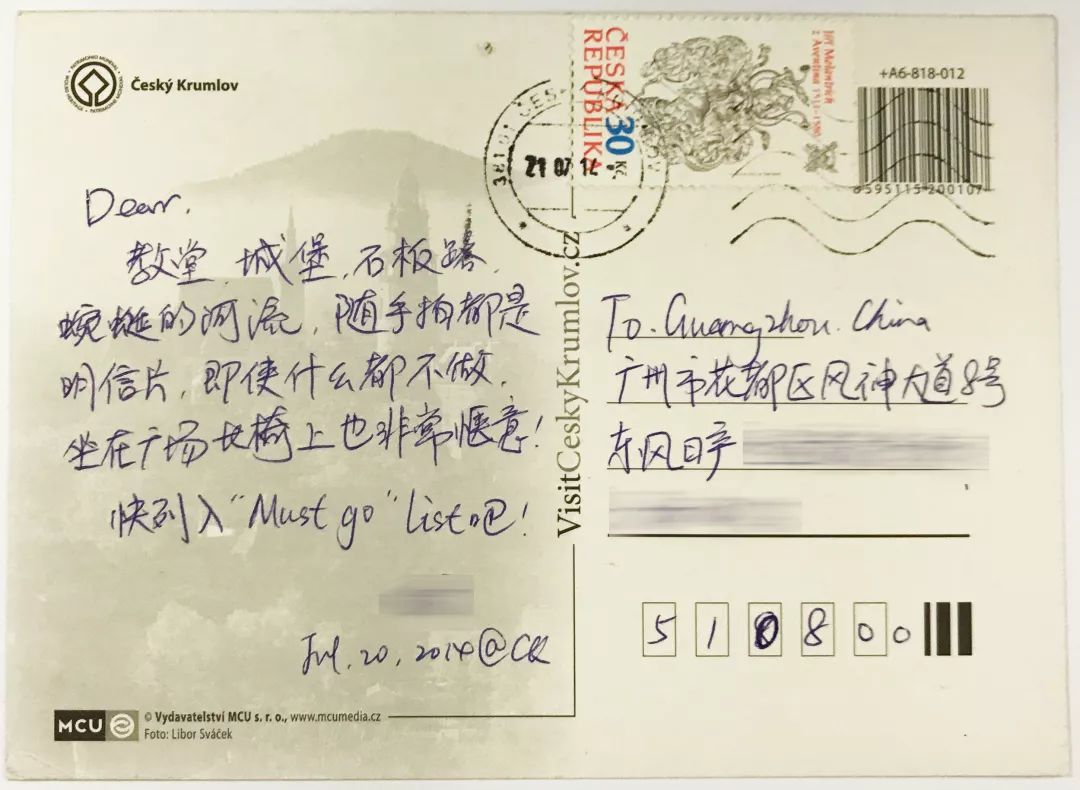 Český Krumlov
Dear.
教堂,城堡,石板路,
蜿蜒的河流,随手拍都是
明信片,即使什么都不做,
坐在广场长椅上也非常惬意!
快列入“Must go” list吧!
Jul. 20, 2014@CK
MCU
© Vydavatelství MCU s. r. o., www.mcumedia.cz
Foto: Libor Sváček
VisitCeskyKrumlov.cz
381 01 ČES
21 07 14
ČESKÁ
REPUBLIKA
30 Kč
Jiří Melantrich
z Aventina 1511–1580
+A6-818-012
8595115200107
To. Guangzhou. China
广州市花都区风神大道8号
东风日产
510800